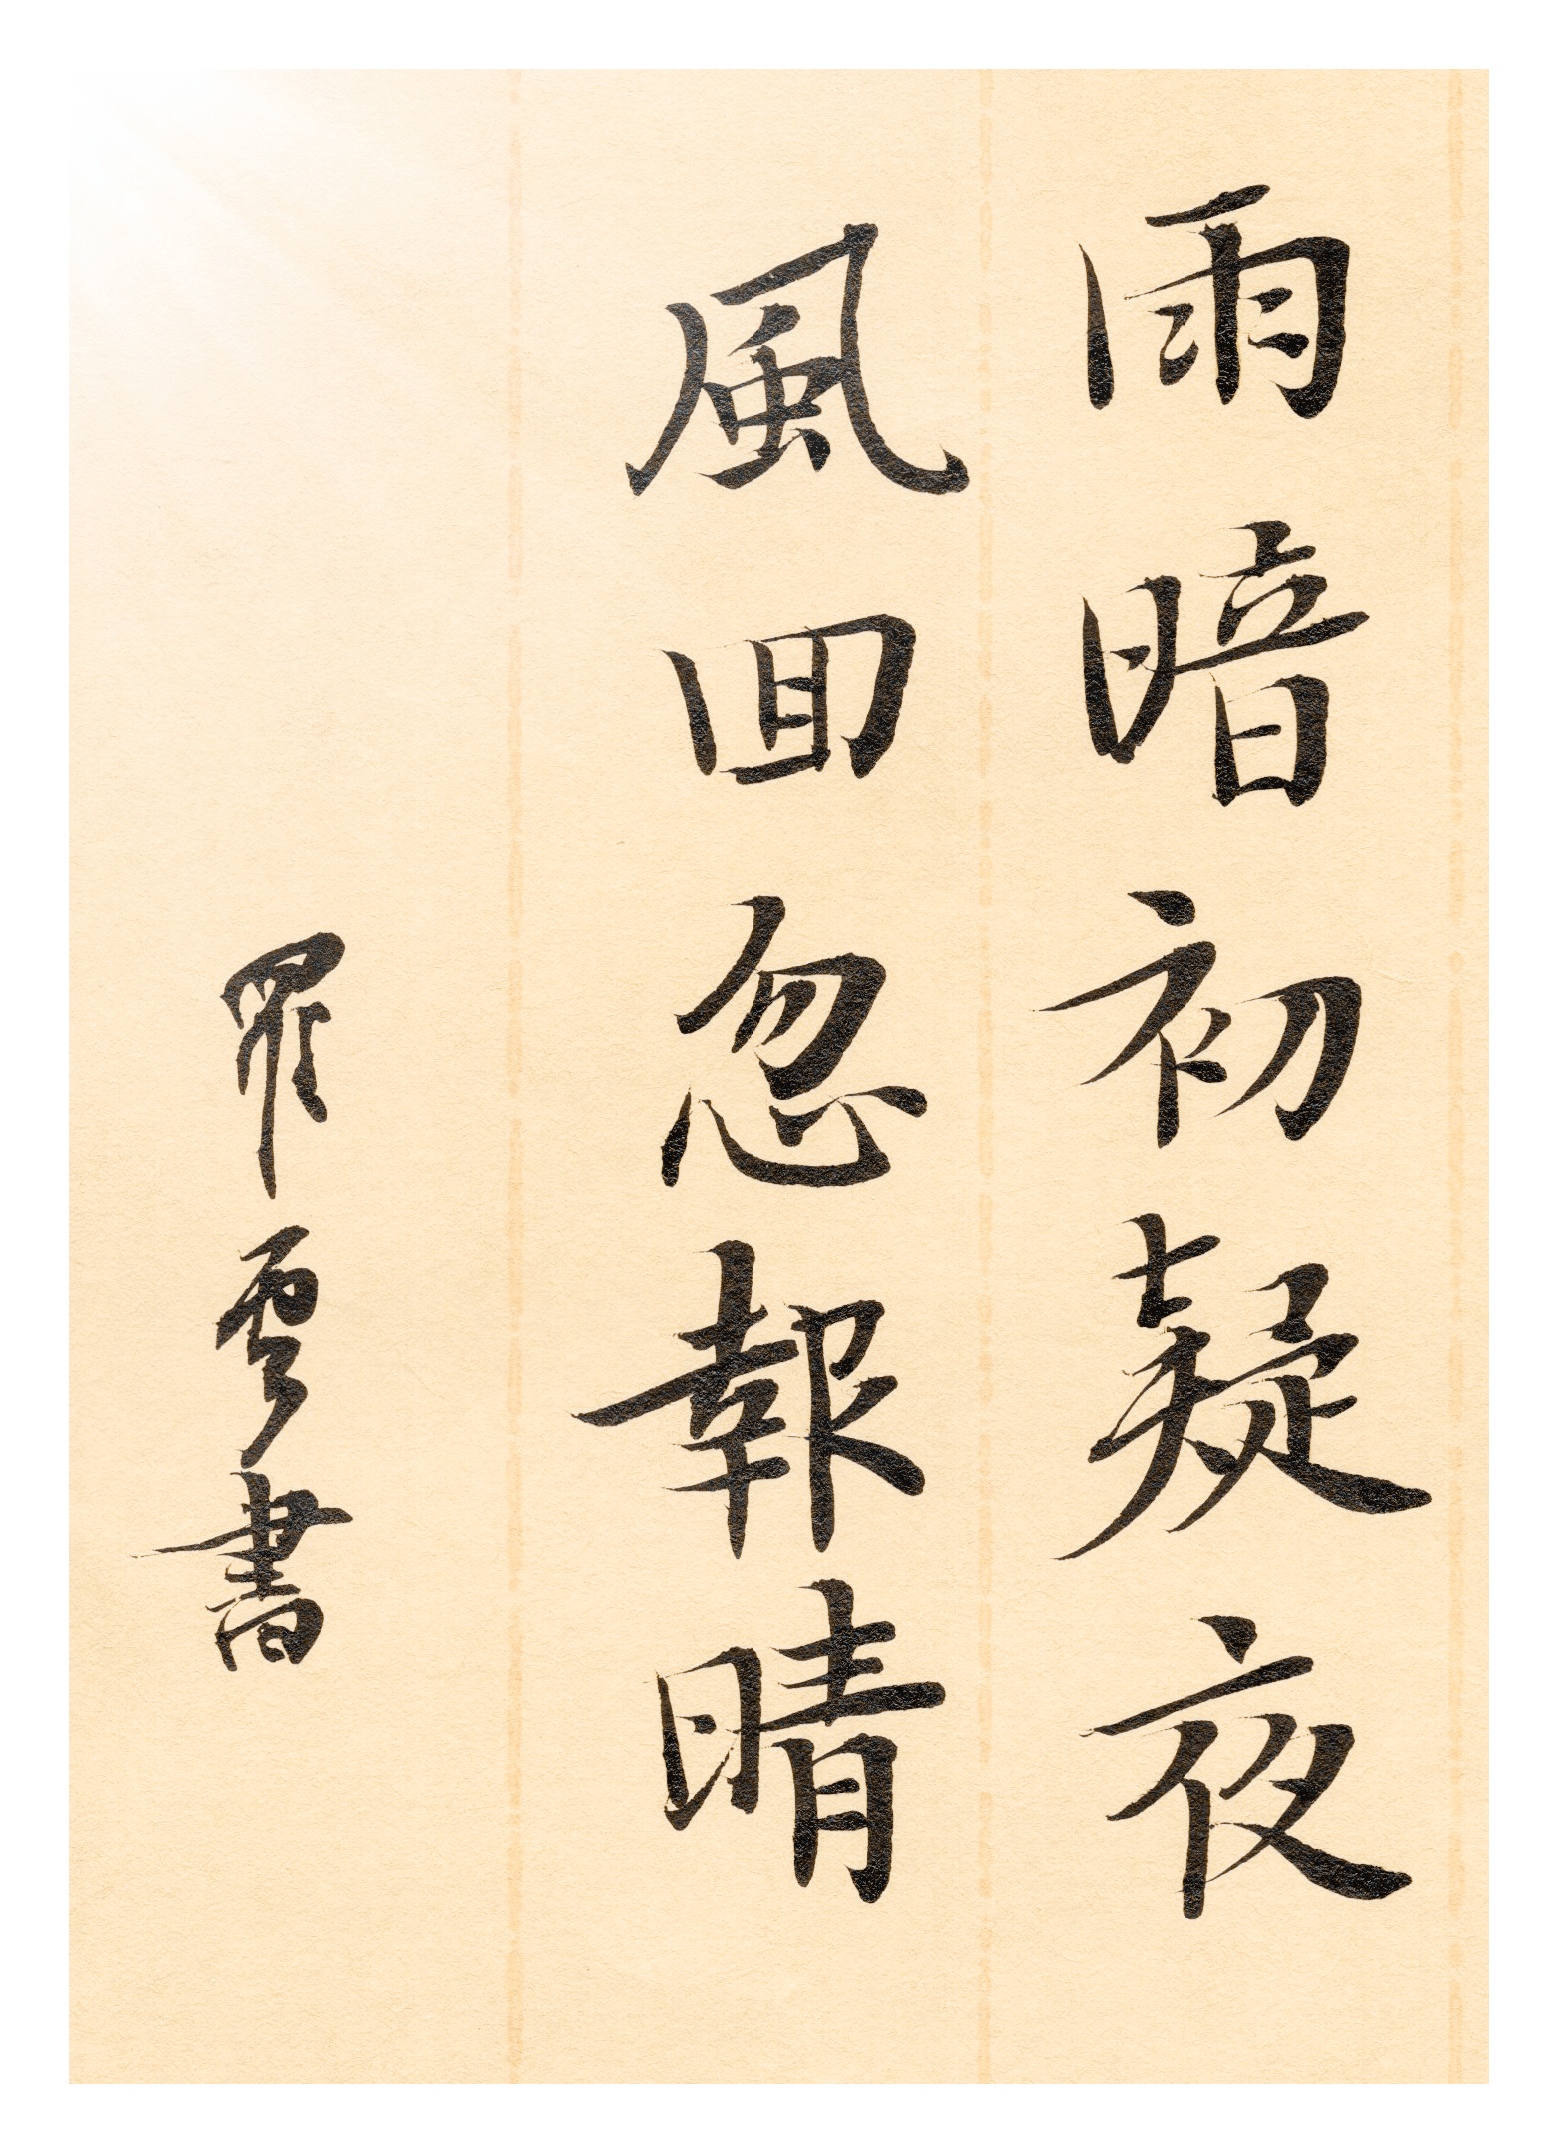 雨暗初疑夜
風回忽報晴
雲書